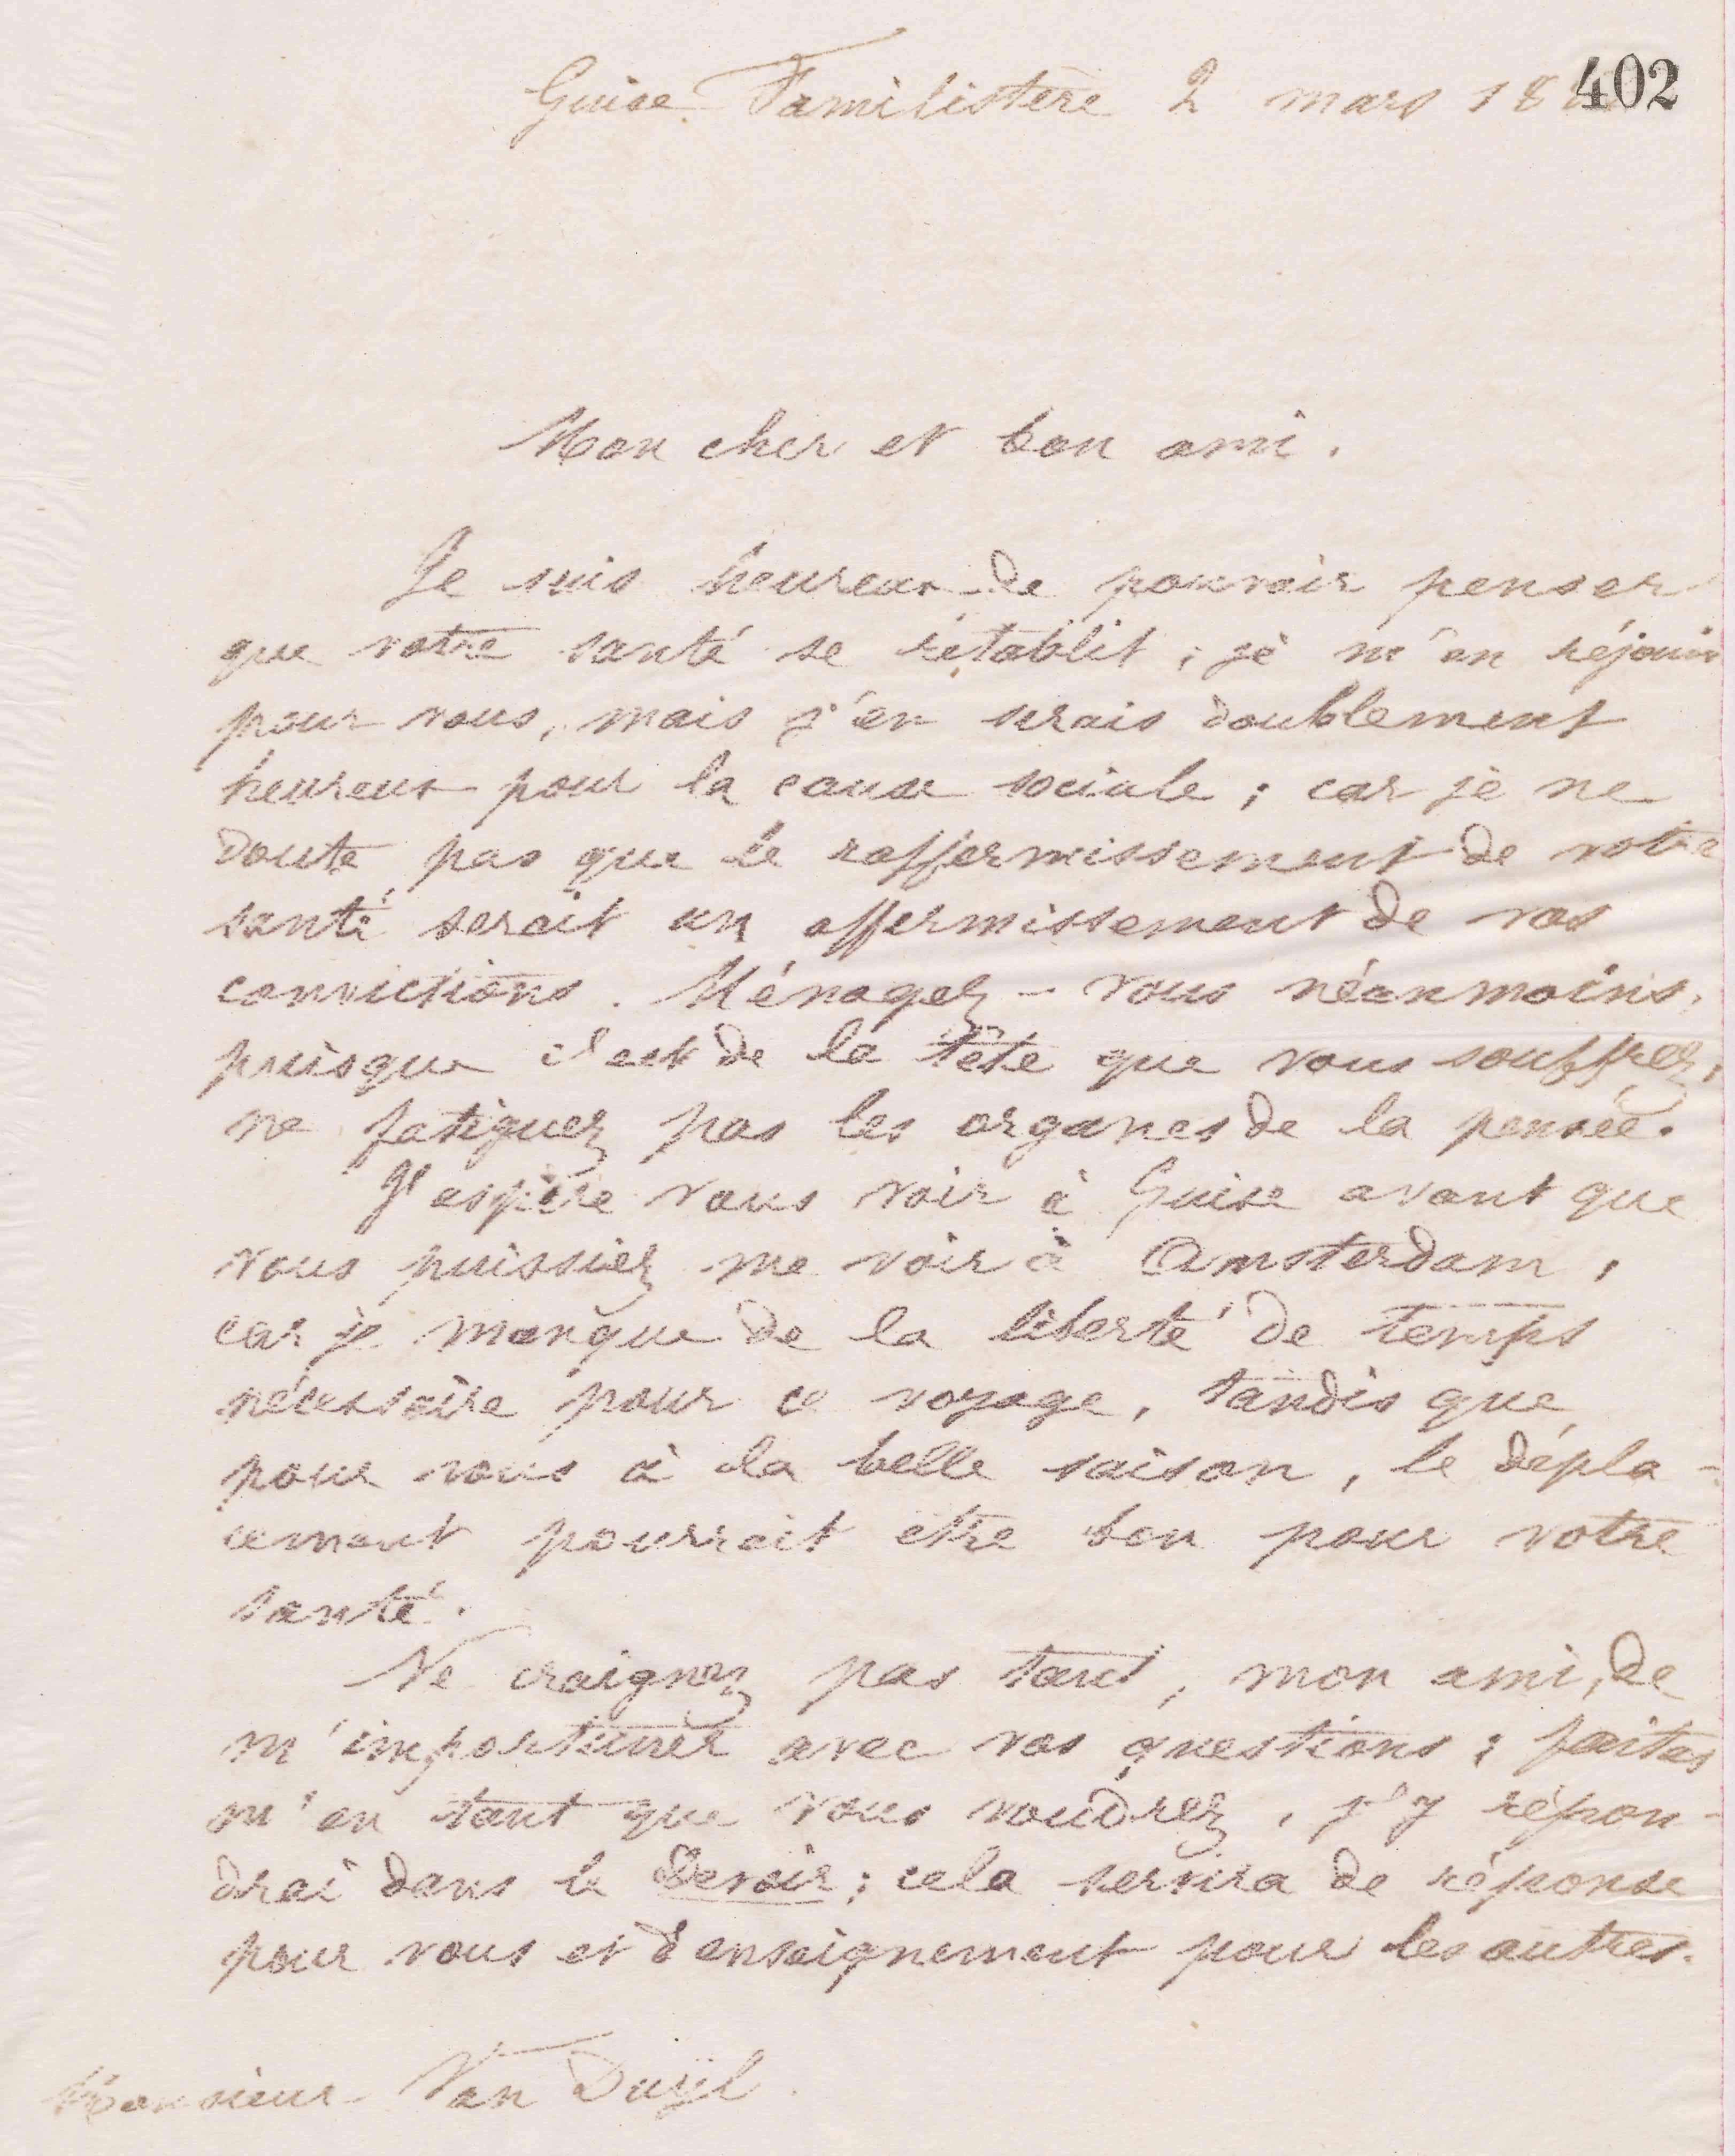 Guise Familistère 2 mars 18
402
Mon cher et bon ami.
Je suis heureux de pouvoir penser
que votre santé se rétablit ; je m'en réjouis
pour vous, mais j'en serais doublement
heureux pour la cause sociale ; car je ne
doute pas que le raffermissement de votre
santé serait un affermissement de vos
convictions. Ménagez-vous néanmoins,
puisque c'est de la tête que vous souffrez,
ne fatiguez pas les organes de la pensée.
J'espère vous voir à Guise avant que
vous puissiez me voir à Amsterdam,
car je manque de la liberté de temps
nécessaire pour ce voyage, tandis que
pour vous à la belle saison, le dépla-
cement pourrait etre bon pour votre
santé.
Ne craignez pas tant, mon ami, de
m'importuner avec vos questions ; faites
m'en tant que vous voudrez, j'y répon-
drai dans le Devoir ; cela servira de réponse
pour vous et d'enseignement pour les autres.
Monsieur Van Duÿl